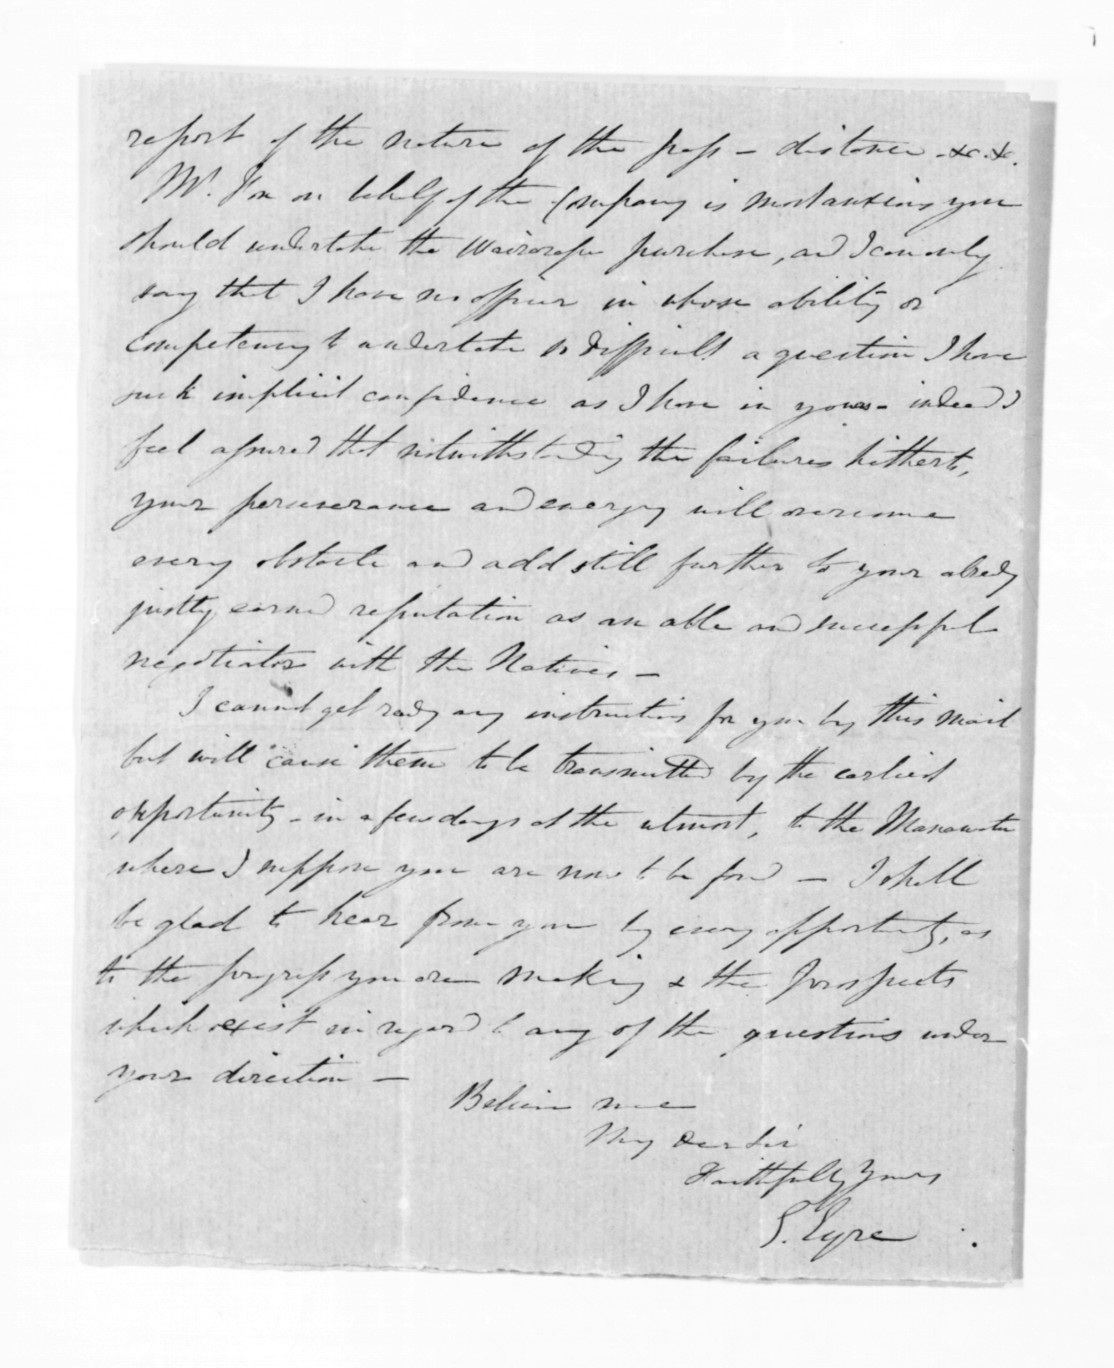 report of the nature of the pass - distance &c. &c.
Mr. Fox on behalf of the Company is most anxious you
should undertake the Wairarapa purchase, and I can only
say that I have no officer in whose ability or
competency to undertake so difficult a question I have
such implicit confidence as I have in yours - indeed I
feel assured that notwithstanding the failures hitherto,
your perseverance and energy will overcome
every obstacle and add still further to your already
justly earned reputation as an able and successful
negotiator with the Natives -
I cannot get ready any instructions for you by this mail
but will cause them to be transmitted by the earliest
opportunity - in a few days at the utmost, to the Manawatu
where I suppose you are now to be found - I shall
be glad to hear from you by every opportunity, as
to the progress you are making & the prospects
which exist in regard to any of the questions under
your direction -
Believe me
My dear Sir
Faithfully Yours
E. Eyre